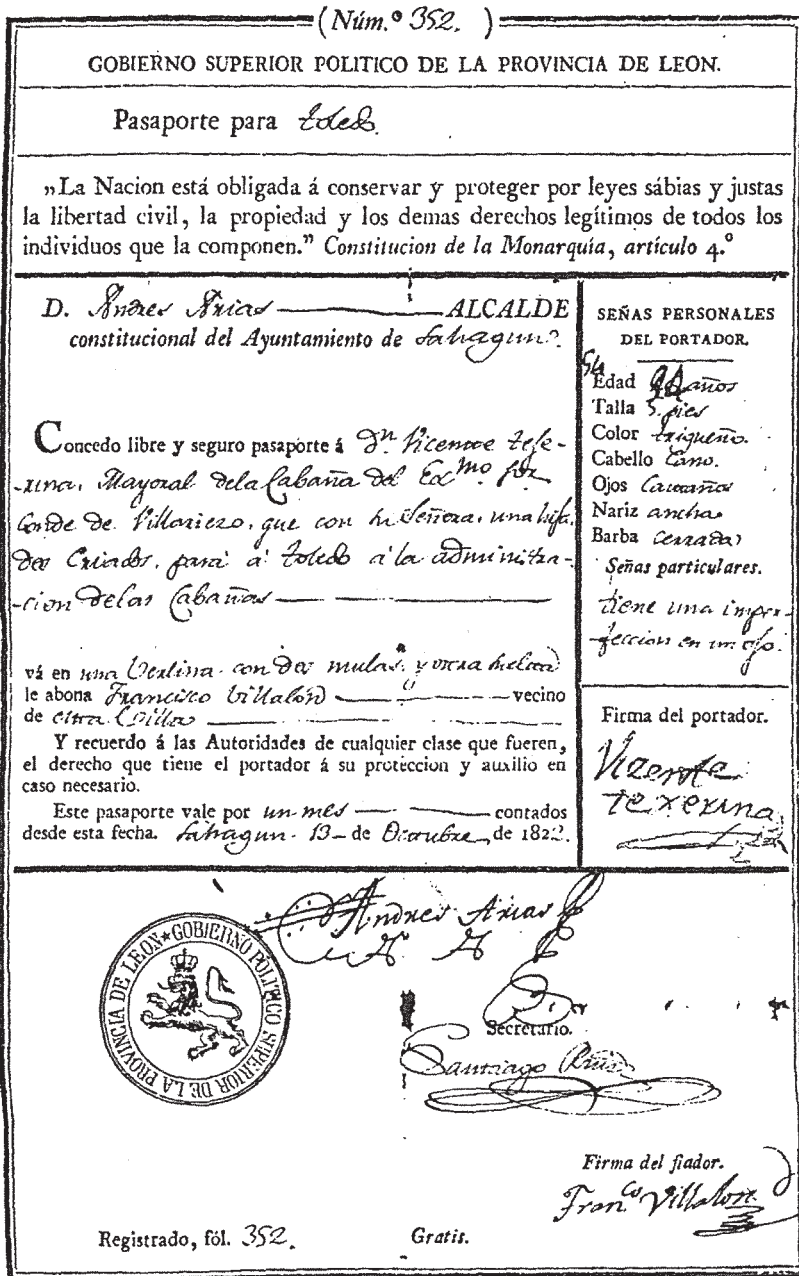 (Núm.º 352. )
GOBIERNO SUPERIOR POLITICO DE LA PROVINCIA DE LEON.
Pasaporte para toledo.
„La Nacion está obligada á conservar y proteger por leyes sábias y justas
la libertad civil, la propiedad y los demas derechos legítimos de todos los
individuos que la componen.” Constitucion de la Monarquía, artículo 4.º
D. Andres Arias ALCALDE
constitucional del Ayuntamiento de Sahagun.
Concedo libre y seguro pasaporte á Dn. Vicente texe-
-rina, Mayoral dela Cabaña del Exmo. Sor.
Conde de Villariezo, que con su Señora, una hija,
dos Criados, pasa á toledo á la administra-
-cion delas Cabañas
vá en una Verlina con dos mulas, y otra suelta
le abona Francisco Villalon vecino
de esta Villa
Y recuerdo á las Autoridades de cualquier clase que fueren,
el derecho que tiene el portador á su proteccion y auxilio en
caso necesario.
Este pasaporte vale por un mes contados
desde esta fecha. Sahagun 13 de Octubre de 1822.
SEÑAS PERSONALES
DEL PORTADOR.
54
Edad años
Talla 5. pies
Color trigueño.
Cabello Cano.
Ojos Castaños
Nariz ancha
Barba cerrada
Señas particulares.
tiene una imper-
-feccion en un ojo.
Firma del portador.
Vizente
texerina
Andres Arias
GOBIERNO POLITICO SUPERIOR DE LA PROVINCIA DE LEON
Secretario.
Santiago Ruiz
Firma del fiador.
Franco. Villalon
Registrado, fól. 352. Gratis.